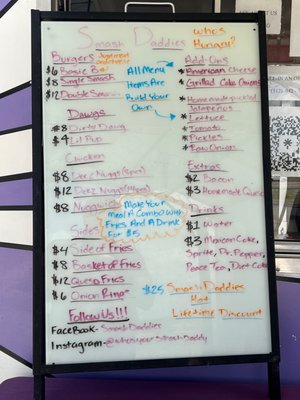 Smash Daddies
Who's Hungry?
Burgers
$6 Basic B
$8 Single Smash
$12 Double Smash
All Menu
Items Are
Build Your
Own
Dawgs
$8 Dirty Dawg
$4 Lil Pup
Chicken
$8 Deez Nuggs
$12 Deez Nuggs
$8 Nuggwich
Make Your
meal A Combo With
Fries And A Drink
For $5
Sides
$4 Side of Fries
$8 Basket of Fries
$12 Queso Fries
$6 Onion Rings
Follow Us!!!
FaceBook-Smash Daddies
Instagram-@whosyoursmashdaddy
Add-Ons
* American Cheese
* Grilled Onions
* Homemade pickled
Jalapeños
* Lettuce
* Tomato
* Pickles
* Raw Onion
Extras
$2 Bacon
$3 Homemade Queso
Drinks
$1 Water
$3 Mexican Coke,
Sprite, Dr. Pepper,
Peace Tea, Diet Coke
$25 Smash Daddies
Hat
Lifetime Discount